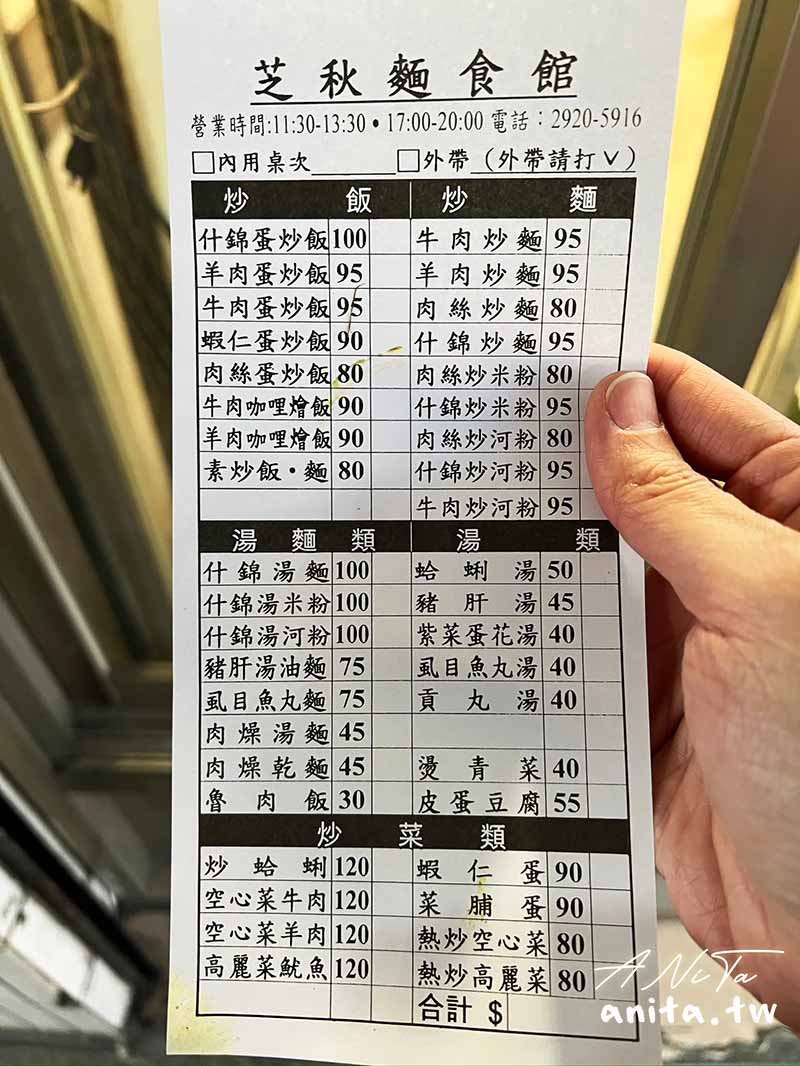 芝秋麵食館
營業時間:11:30-13:30•17:00-20:00 電話：2920-5916
□內用桌次______□外帶_(外帶請打∨)
炒飯 炒麵
什錦蛋炒飯 100 牛肉炒麵 95
羊肉蛋炒飯 95 羊肉炒麵 95
牛肉蛋炒飯 95 肉絲炒麵 80
蝦仁蛋炒飯 90 什錦炒麵 95
肉絲蛋炒飯 80 肉絲炒米粉 80
牛肉咖哩燴飯 90 什錦炒米粉 95
羊肉咖哩燴飯 90 肉絲炒河粉 80
素炒飯•麵 80 什錦炒河粉 95
牛肉炒河粉 95
湯麵類 湯類
什錦湯麵 100 蛤蜊湯 50
什錦湯米粉 100 豬肝湯 45
什錦湯河粉 100 紫菜蛋花湯 40
豬肝湯油麵 75 虱目魚丸湯 40
虱目魚丸麵 75 貢丸湯 40
肉燥湯麵 45
肉燥乾麵 45 燙青菜 40
魯肉飯 30 皮蛋豆腐 55
炒菜類
炒蛤蜊 120 蝦仁蛋 90
空心菜牛肉 120 菜脯蛋 90
空心菜羊肉 120 熱炒空心菜 80
高麗菜魷魚 120 熱炒高麗菜 80
合計 $
ANiTa
anita.tw